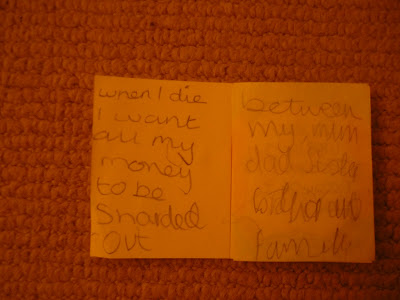 when I die
I want
all my
money
to be
Sharded
Out
between
my mum
dad sister
and
family